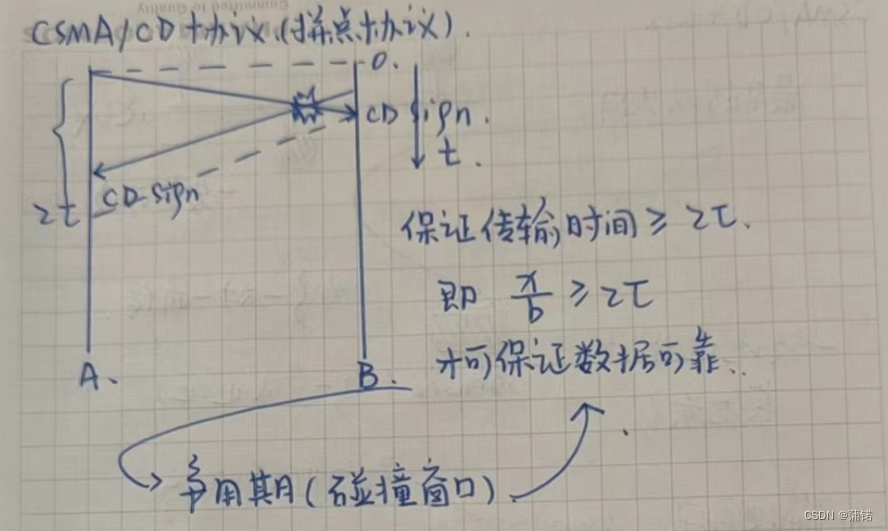 CSMA/CD协议(拼点协议).
0.
CD sign.
t.
CD sign
2τ
保证传输时间 ≥ 2τ.
即 x/b ≥ 2τ
才可保证数据可靠..
A.
B.
争用期(碰撞窗口).
CSDN @蒲锘